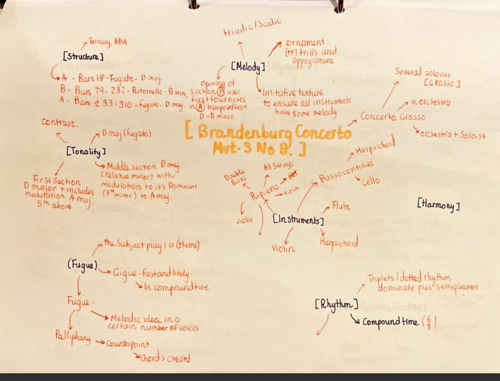 Ternary ABA
[Structure]
A - Bars 1-8 - Fugato - D maj
B - Bars 79 - 232 - Ritornello - B min
A - Bars 233 - 310 - Fugato - D maj
triadic/Scalic
[Melody]
ornament
(tr) trills and
appogiatura
opening of
section B uses
first four notes
in A transposition
D - B minor
Imitative texture
to ensure all instruments
have some melody
[Brandenburg Concerto
Mvt-3 No 8. ]
Several soloists
[GROSSO]
Concerto Grosso
orchestra
orchestra + Soloist
Contrast.
D maj (fugato)
[Tonality]
Middle section D maj
(relative minor) with
modulation to its Dominant
(F# minor) to A maj
First Section
D major + includes
modulation A maj
5th above
Double
Bass
All Strings
Ripieno
viola
Violin
[Instruments]
Harpsichord
Basso continuo
Cello
Flute
Harpsichord
[Harmony]
the Subject plays a (theme)
(Fugue)
Gigue - fast and lively
In compound time
Fugue -
Melodic idea in a
certain number of voices
Polliphony
Counterpoint
chords created
Triplets/dotted rhythm
dominate plus semiquavers
[Rhythm]
Compound time (6/8)